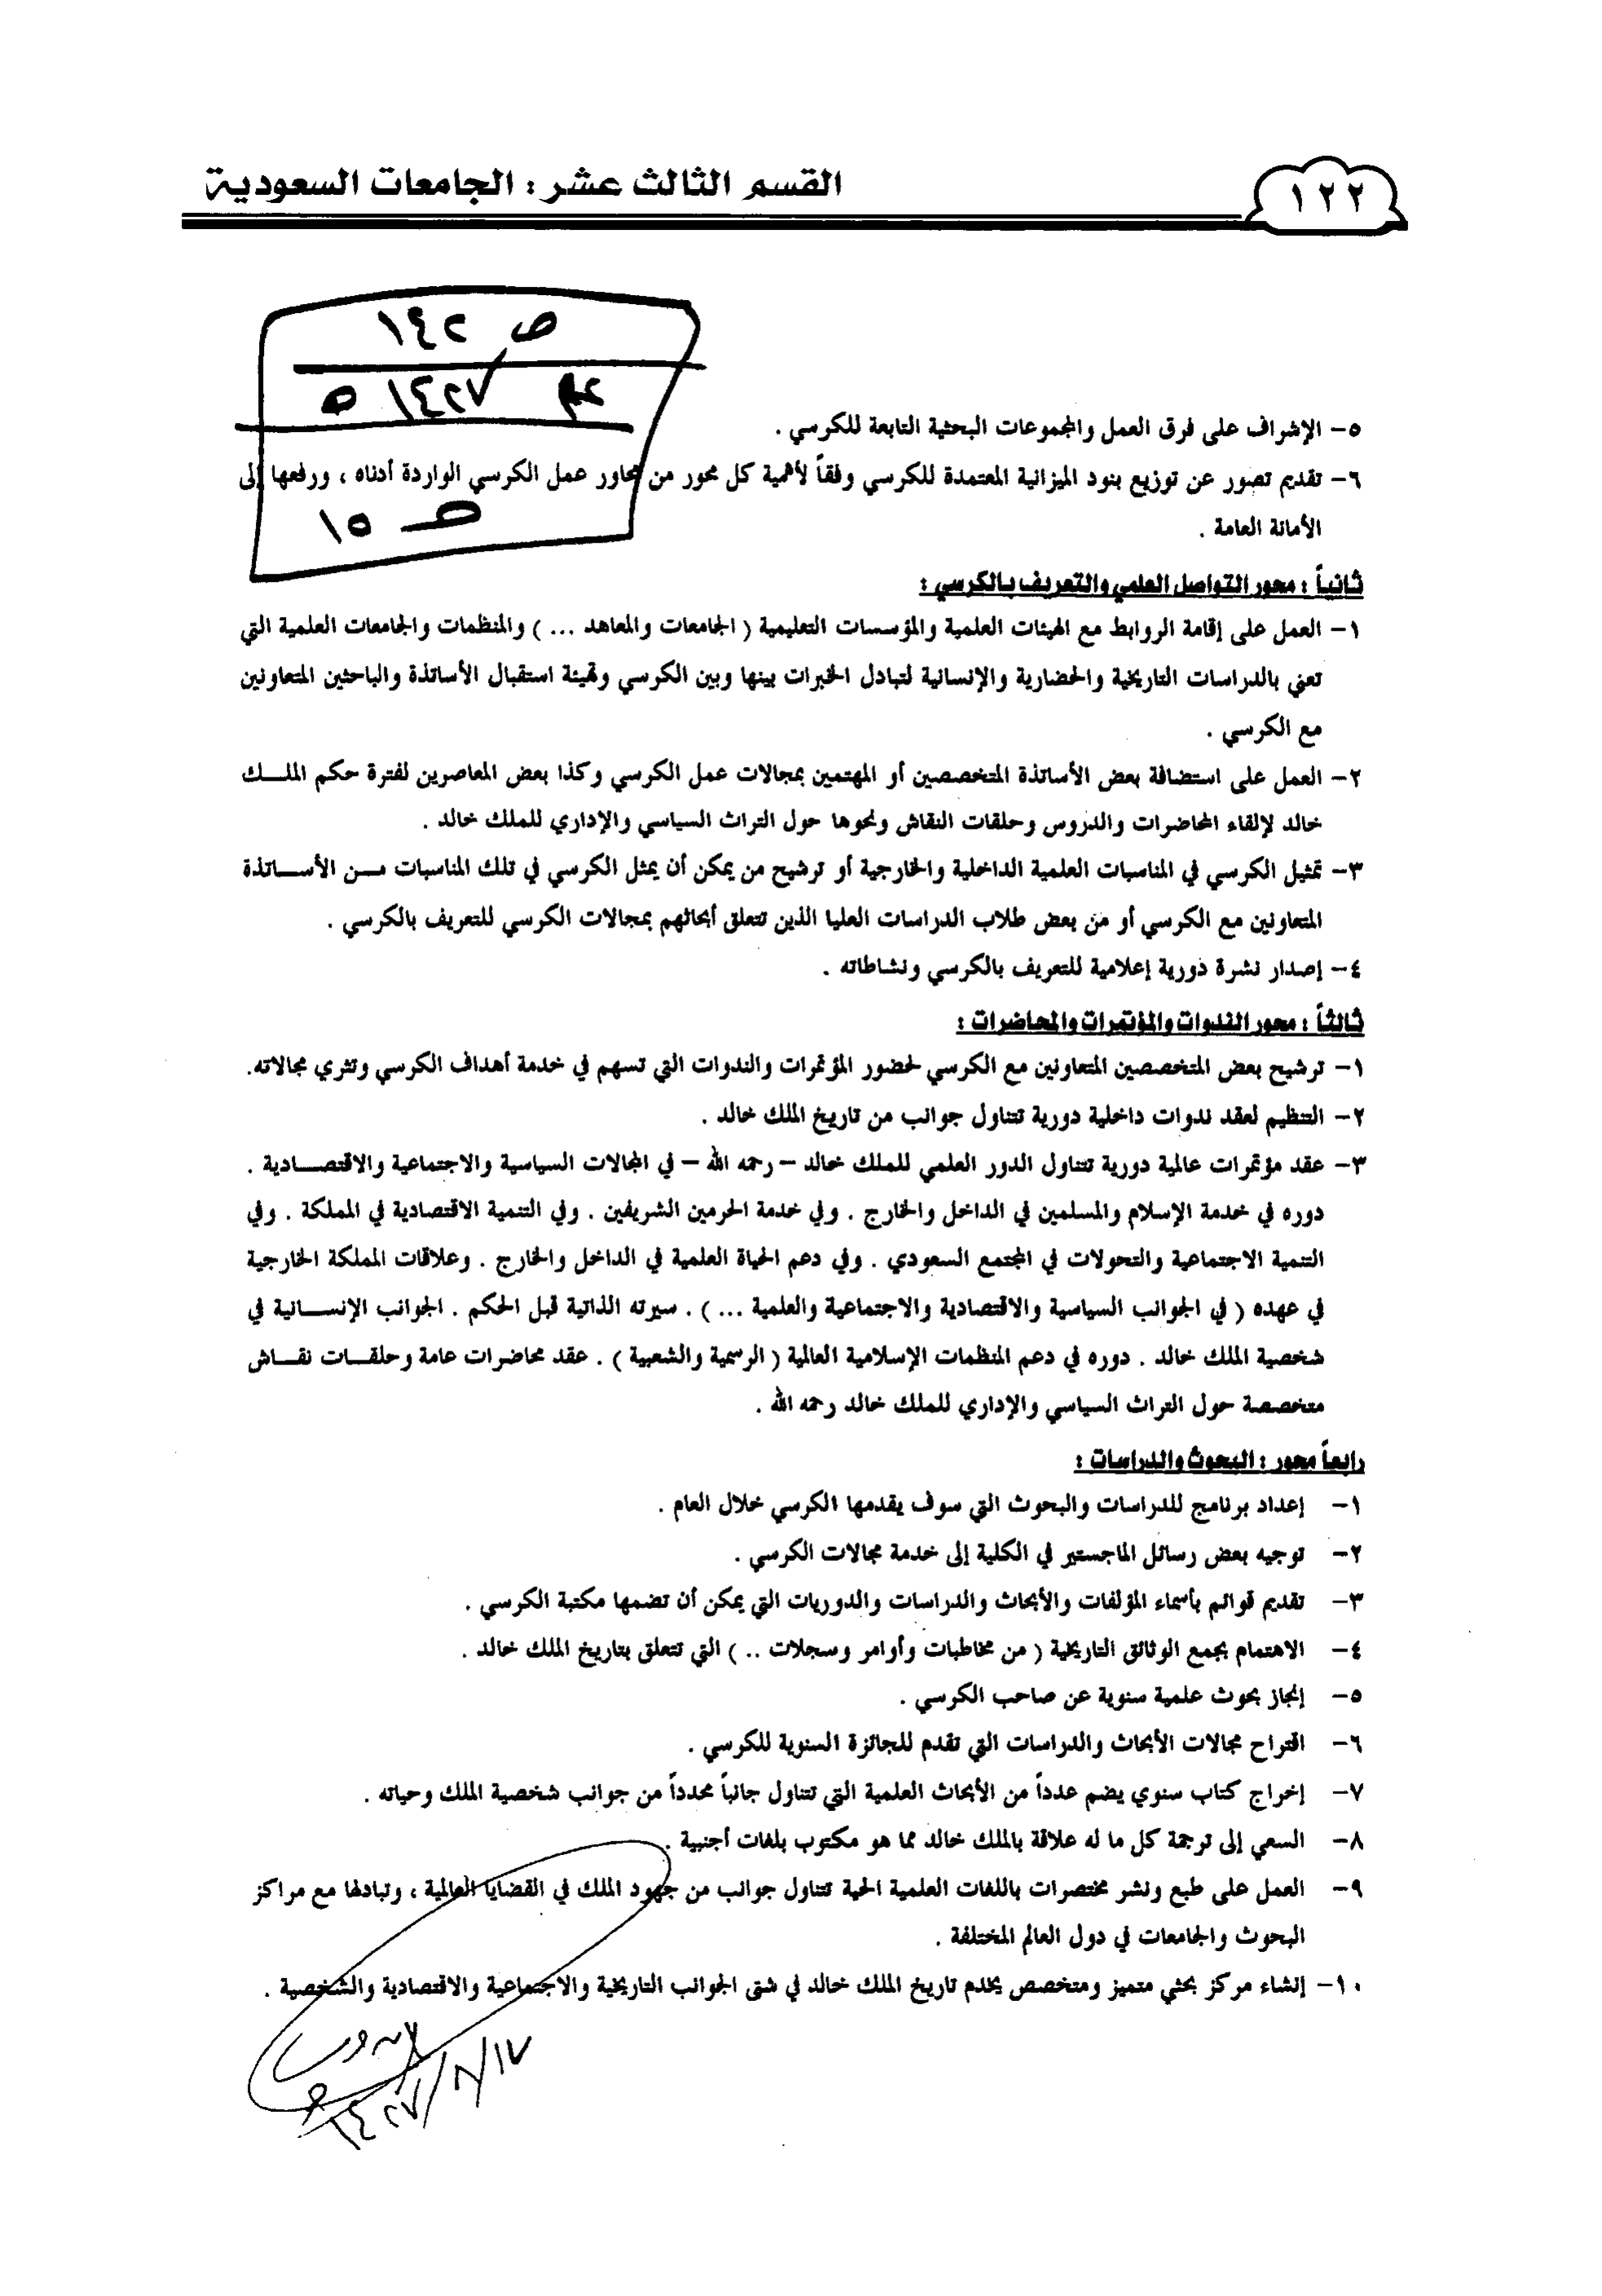 ١٢٢
القسم الثالث عشر : الجامعات السعودية
ص ١٤٢
١٤٢٧ ه
ص ١٥
٥- الإشراف على فرق العمل والمجموعات البحثية التابعة للكرسي .
٦- تقديم تصور عن توزيع بنود الميزانية المعتمدة للكرسي وفقاً لأهمية كل محور من محاور عمل الكرسي الواردة أدناه ، ورفعها إلى
الأمانة العامة .
ثانياً : محور التواصل العلمي والتعريف بالكرسي :
١- العمل على إقامة الروابط مع الهيئات العلمية والمؤسسات التعليمية ( الجامعات والمعاهد ... ) والمنظمات والجامعات العلمية التي
تعني بالدراسات التاريخية والحضارية والإنسانية لتبادل الخبرات بينها وبين الكرسي وتهيئة استقبال الأساتذة والباحثين المتعاونين
مع الكرسي .
٢- العمل على استضافة بعض الأساتذة المتخصصين أو المهتمين بمجالات عمل الكرسي وكذا بعض المعاصرين لفترة حكم الملـــك
خالد لإلقاء المحاضرات والدروس وحلقات النقاش ونحوها حول التراث السياسي والإداري للملك خالد .
٣- تمثيل الكرسي في المناسبات العلمية الداخلية والخارجية أو ترشيح من يمكن أن يمثل الكرسي في تلك المناسبات مـــن الأســـاتذة
المتعاونين مع الكرسي أو من بعض طلاب الدراسات العليا الذين تتعلق أبحاثهم بمجالات الكرسي للتعريف بالكرسي .
٤- إصدار نشرة دورية إعلامية للتعريف بالكرسي ونشاطاته .
ثالثاً : محور الندوات والمؤتمرات والمحاضرات :
١- ترشيح بعض المتخصصين المتعاونين مع الكرسي لحضور المؤتمرات والندوات التي تسهم في خدمة أهداف الكرسي وتثري مجالاته.
٢- التنظيم لعقد ندوات داخلية دورية تتناول جوانب من تاريخ الملك خالد .
٣- عقد مؤتمرات عالمية دورية تتناول الدور العلمي للملك خالد – رحمه الله – في المجالات السياسية والاجتماعية والاقتصـــادية .
دوره في خدمة الإسلام والمسلمين في الداخل والخارج . وفي خدمة الحرمين الشريفين . وفي التنمية الاقتصادية في المملكة . وفي
التنمية الاجتماعية والتحولات في المجتمع السعودي . وفي دعم الحياة العلمية في الداخل والخارج . وعلاقات المملكة الخارجية
في عهده ( في الجوانب السياسية والاقتصادية والاجتماعية والعلمية ... ) . سيرته الذاتية قبل الحكم . الجوانب الإنســـانية في
شخصية الملك خالد . دوره في دعم المنظمات الإسلامية العالمية ( الرسمية والشعبية ) . عقد محاضرات عامة وحلقـــات نقـــاش
متخصصة حول التراث السياسي والإداري للملك خالد رحمه الله .
رابعاً محور : البحوث والدراسات :
١- إعداد برنامج للدراسات والبحوث التي سوف يقدمها الكرسي خلال العام .
٢- توجيه بعض رسائل الماجستير في الكلية إلى خدمة مجالات الكرسي .
٣- تقديم قوائم بأسماء المؤلفات والأبحاث والدراسات والدوريات التي يمكن أن تضمها مكتبة الكرسي .
٤- الاهتمام بجمع الوثائق التاريخية ( من مخاطبات وأوامر وسجلات .. ) التي تتعلق بتاريخ الملك خالد .
٥- إنجاز بحوث علمية سنوية عن صاحب الكرسي .
٦- اقتراح مجالات الأبحاث والدراسات التي تقدم للجائزة السنوية للكرسي .
٧- إخراج كتاب سنوي يضم عدداً من الأبحاث العلمية التي تتناول جانباً محدداً من جوانب شخصية الملك وحياته .
٨- السعي إلى ترجمة كل ما له علاقة بالملك خالد مما هو مكتوب بلغات أجنبية .
٩- العمل على طبع ونشر مختصرات باللغات العلمية الحية تتناول جوانب من جهود الملك في القضايا العالمية ، وتبادلها مع مراكز
البحوث والجامعات في دول العالم المختلفة .
١٠- إنشاء مركز بحثي متميز ومتخصص يخدم تاريخ الملك خالد في شتى الجوانب التاريخية والاجتماعية والاقتصادية والشخصية .
١٧/٨/١٤٢٧